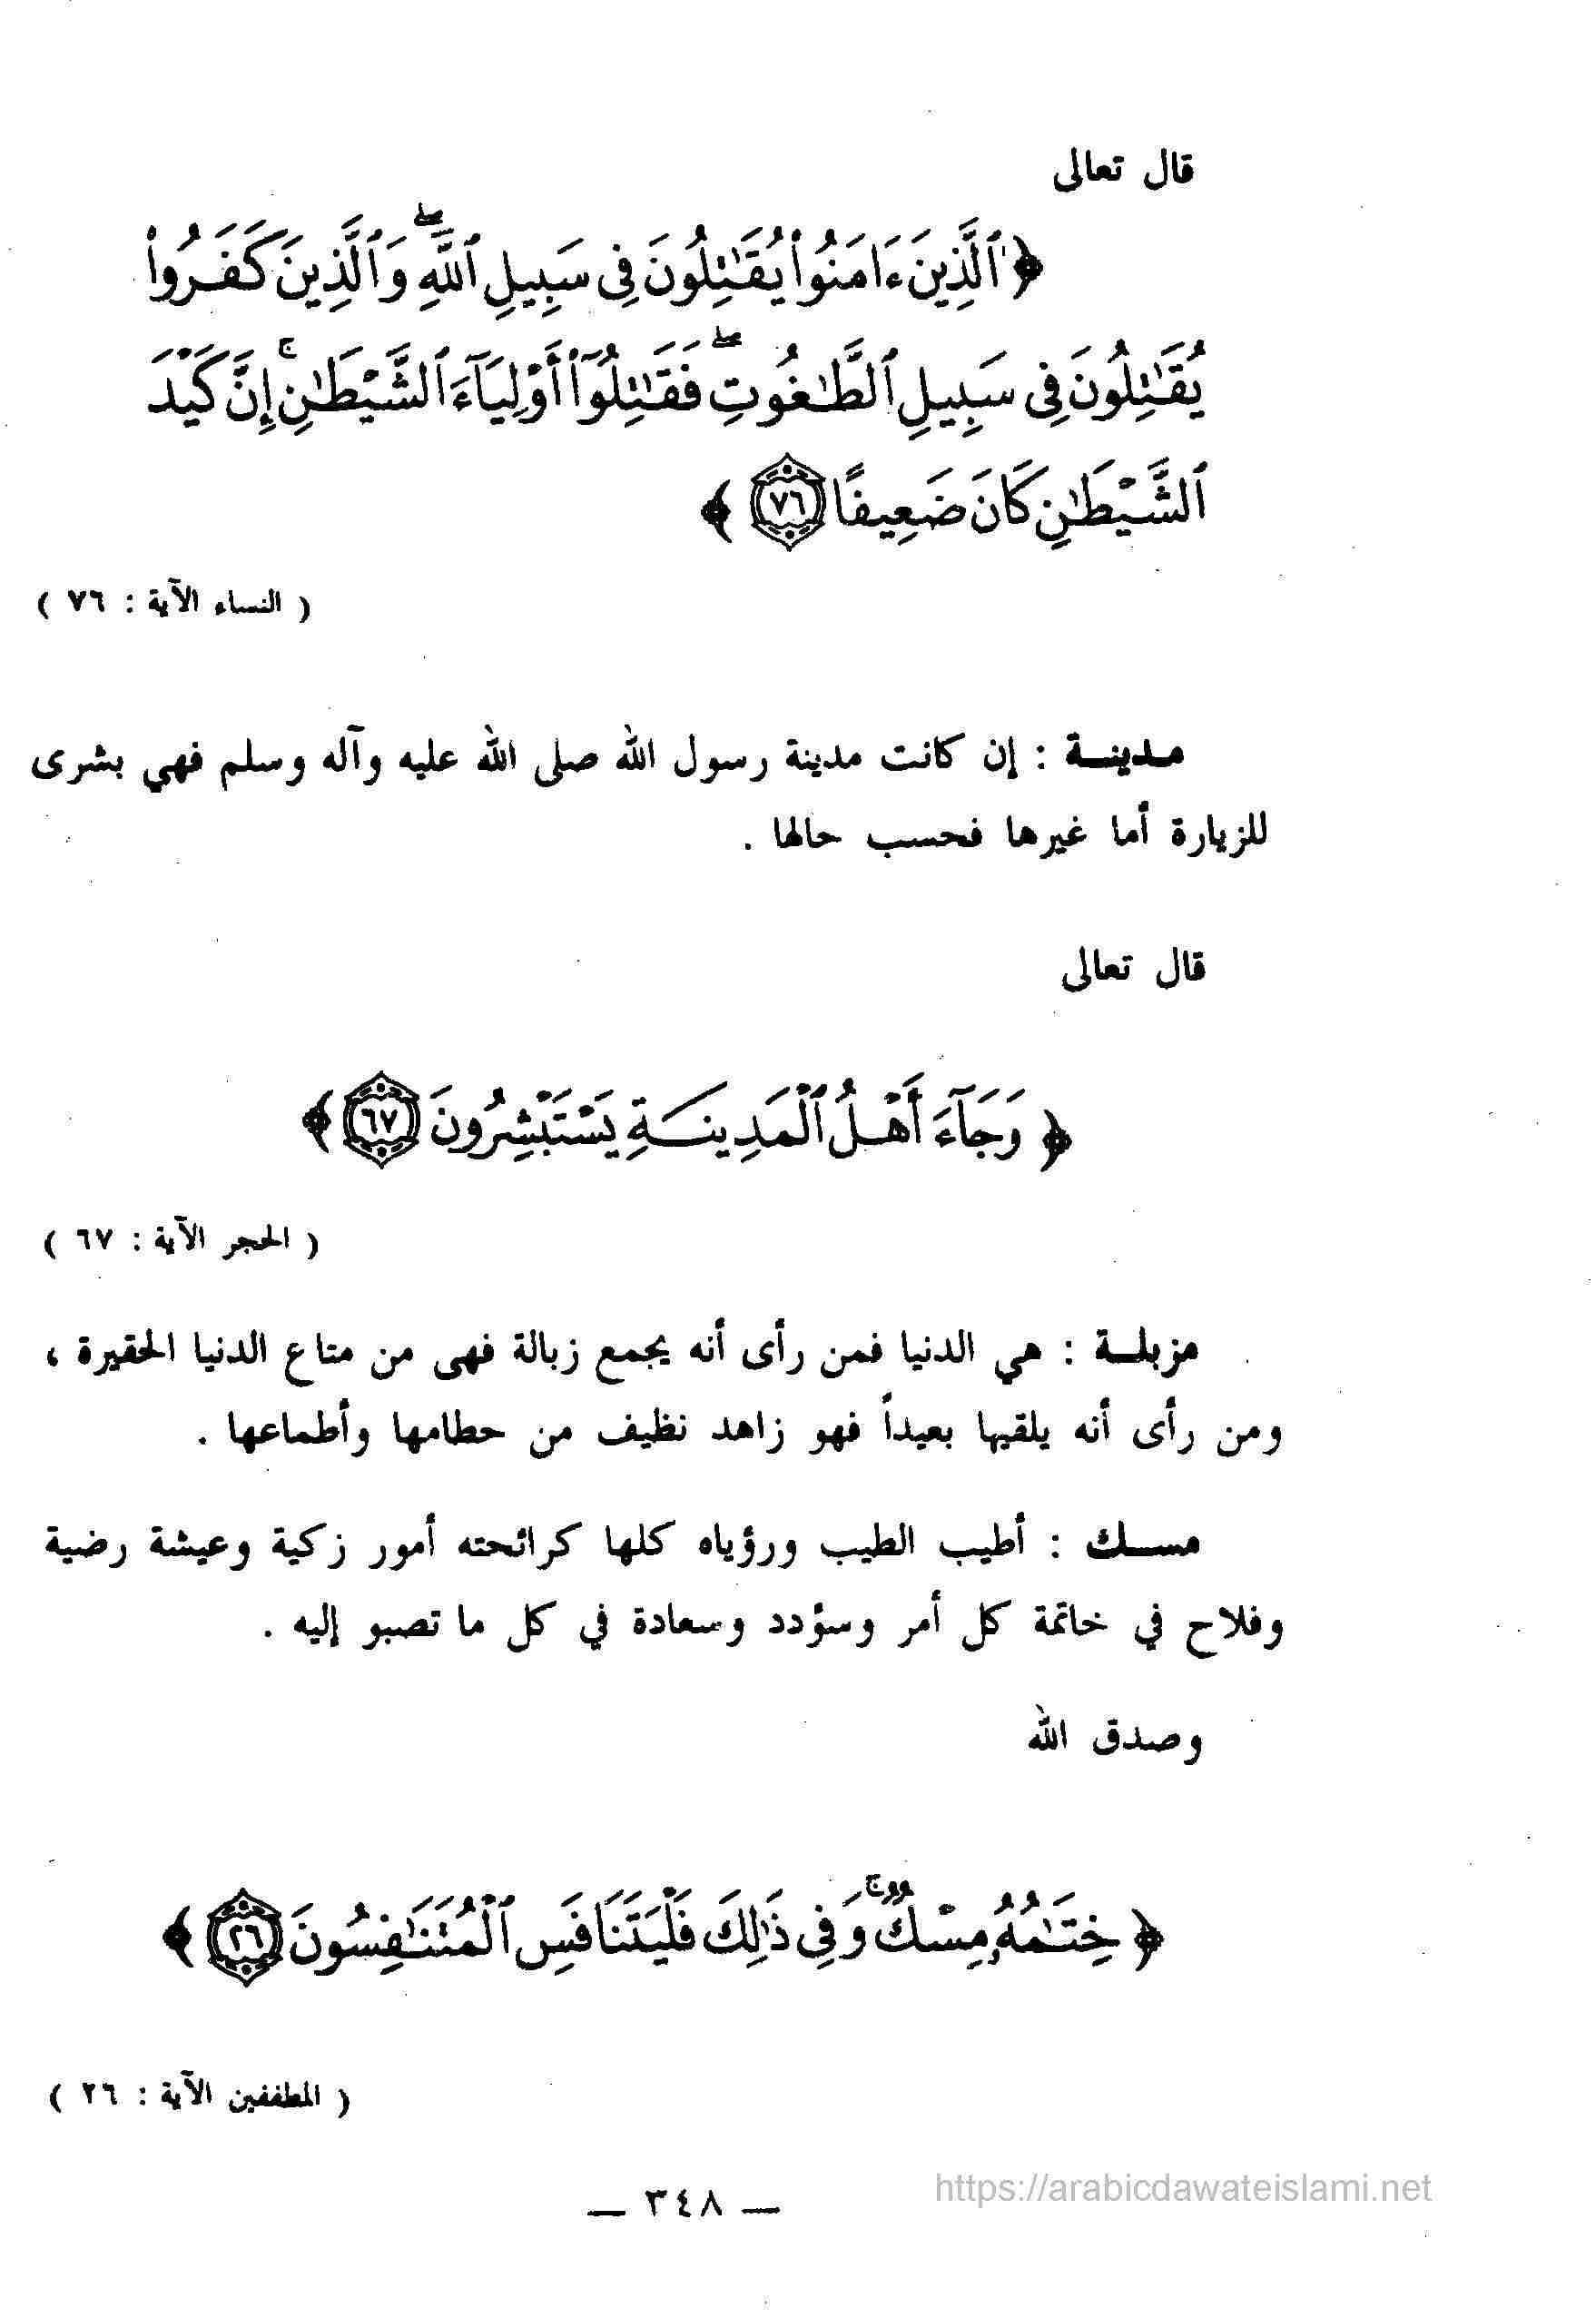 قال تعالى
﴿ ٱلَّذِينَ ءَامَنُوا۟ يُقَـٰتِلُونَ فِى سَبِيلِ ٱللَّهِ ۖ وَٱلَّذِينَ كَفَرُوا۟
يُقَـٰتِلُونَ فِى سَبِيلِ ٱلطَّـٰغُوتِ ۖ فَقَـٰتِلُوٓا۟ أَوْلِيَآءَ ٱلشَّيْطَـٰنِ ۚ إِنَّ كَيْدَ
ٱلشَّيْطَـٰنِ كَانَ ضَعِيفًا ٧٦ ﴾
( النساء الآية : ٧٦ )
مدينـــة : إن كانت مدينة رسول الله صلى الله عليه وآله وسلم فهي بشرى
للزيارة أما غيرها فحسب حالها .
قال تعالى
﴿ وَجَآءَ أَهْلُ ٱلْمَدِينَـــةِ يَسْتَبْشِرُونَ ٦٧ ﴾
( الحجر الآية : ٦٧ )
مزبلـــة : هي الدنيا فمن رأى أنه يجمع زبالة فهى من متاع الدنيا الحقيرة ،
ومن رأى أنه يلقيها بعيداً فهو زاهد نظيف من حطامها وأطماعها .
مســـك : أطيب الطيب ورؤياه كلها كرائحته أمور زكية وعيشة رضية
وفلاح في خاتمة كل أمر وسؤدد وسعادة في كل ما تصبو إليه .
وصدق الله
﴿ خِتَـٰمُهُۥ مِسْكٌ ۚ وَفِى ذَٰلِكَ فَلْيَتَنَافَسِ ٱلْمُتَنَـٰفِسُونَ ٢٦ ﴾
( المطففين الآية : ٢٦ )
— ٣٤٨ —
https://arabicdawateislami.net